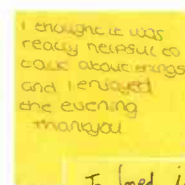 I thought it was
really helpful to
talk about things
and I enjoyed
the evening
thankyou